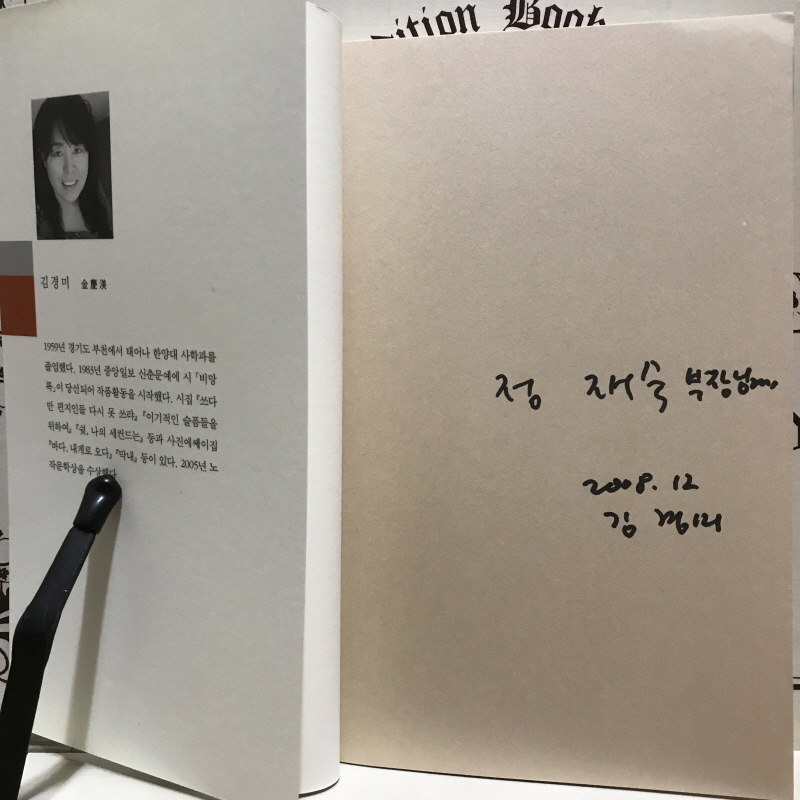 dition Book
김경미 金慶渼
1959년 경기도 부천에서 태어나 한양대 사학과를
졸업했다. 1983년 중앙일보 신춘문예에 시 「비망
록」이 당선되어 작품활동을 시작했다. 시집 『쓰다
만 편지인들 다시 못 쓰랴』 『이기적인 슬픔들을
위하여』 『쉿, 나의 세컨드는』 등과 사진에쎄이집
『바다, 내게로 오다』 『막내』 등이 있다. 2005년 노
작문학상을 수상했다.
정 재숙 부장님
2008. 12
김 경미